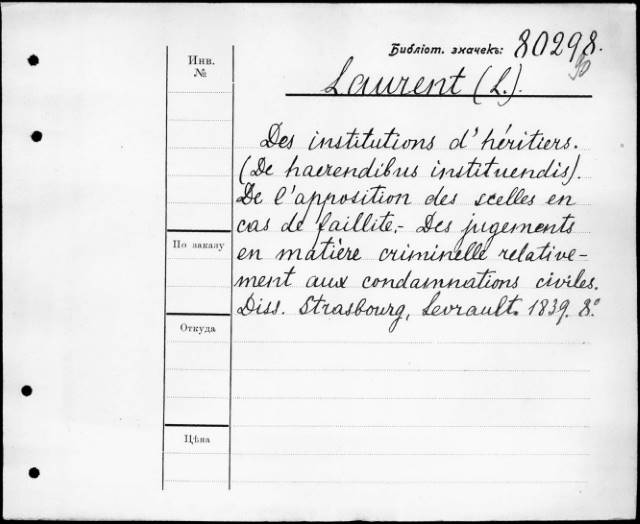 Библіот. значекъ: 80298.
90
Инв.
№
Laurent (L.).
Des institutions d'héritiers.
(De haerendibus instituendis).
De l'apposition des scelles en
cas de faillite.- Des jugements
По заказу
en matière criminelle relative-
ment aux condamnations civiles.
Diss. Strasbourg, Levrault. 1839. 8.º
Откуда
Цѣна